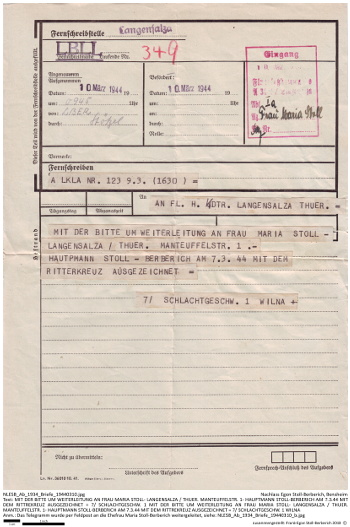 Fernschreibstelle Langensalza
LBLI
Fernschreibname Laufende Nr. 349
Angenommen
Aufgenommen
Datum: 10. März 1944 19
um: 0945 Uhr
von: LBER
durch:
Befördert:
Datum: 10. März 1944 19
um: Uhr
an:
durch:
Rolle:
Eingang
Ia
Frau Maria Stoll
Dieser Teil wird von der Fernschreibstelle ausgefüllt.
Vermerke:
Fernschreiben
A LKLA NR. 123 9.3. (1630) =
Abgangstag Abgangszeit
An
AN FL. H. KDTR. LANGENSALZA THUER. =
MIT DER BITTE UM WEITERLEITUNG AN FRAU MARIA STOLL -
LANGENSALZA / THUER. MANTEUFFELSTR 1 .-
HAUPTMANN STOLL - BERBERICH AM 7.3.44 MIT DEM
RITTERKREUZ AUSGEZEICHNET =
7/ SCHLACHTGESCHW. 1 WILNA +
Nicht zu übermitteln:
Unterschrift des Aufgebers
Fernsprech-Anschluß des Aufgebers
NLESB_Ab_1934_Briefe_19440310.jpg
Nachlass Egon Stoll-Berberich, Bensheim
Text: MIT DER BITTE UM WEITERLEITUNG AN FRAU MARIA STOLL- LANGENSALZA / THUER. MANTEUFFELSTR. 1- HAUPTMANN STOLL-BERBERICH AM 7.3.44 MIT
DEM RITTERKREUZ AUSGEZEICHNET = 7/ SCHLACHTGESCHW. 1 MIT DER BITTE UM WEITERLEITUNG AN FRAU MARIA STOLL- LANGENSALZA / THUER.
MANTEUFFELSTR. 1- HAUPTMANN STOLL-BERBERICH AM 7.3.44 MIT DEM RITTERKREUZ AUSGEZEICHNET = 7/ SCHLACHTGESCHW. 1 WILNA
Anm.: Das Telegramm wurde per Feldpost an die Ehefrau Maria Stoll-Berberich weitergeleitet, siehe: NLESB_Ab_1934_Briefe_19440310_b.jpg
zusammengestellt: Frank-Egon Stoll-Berberich 2018 ©